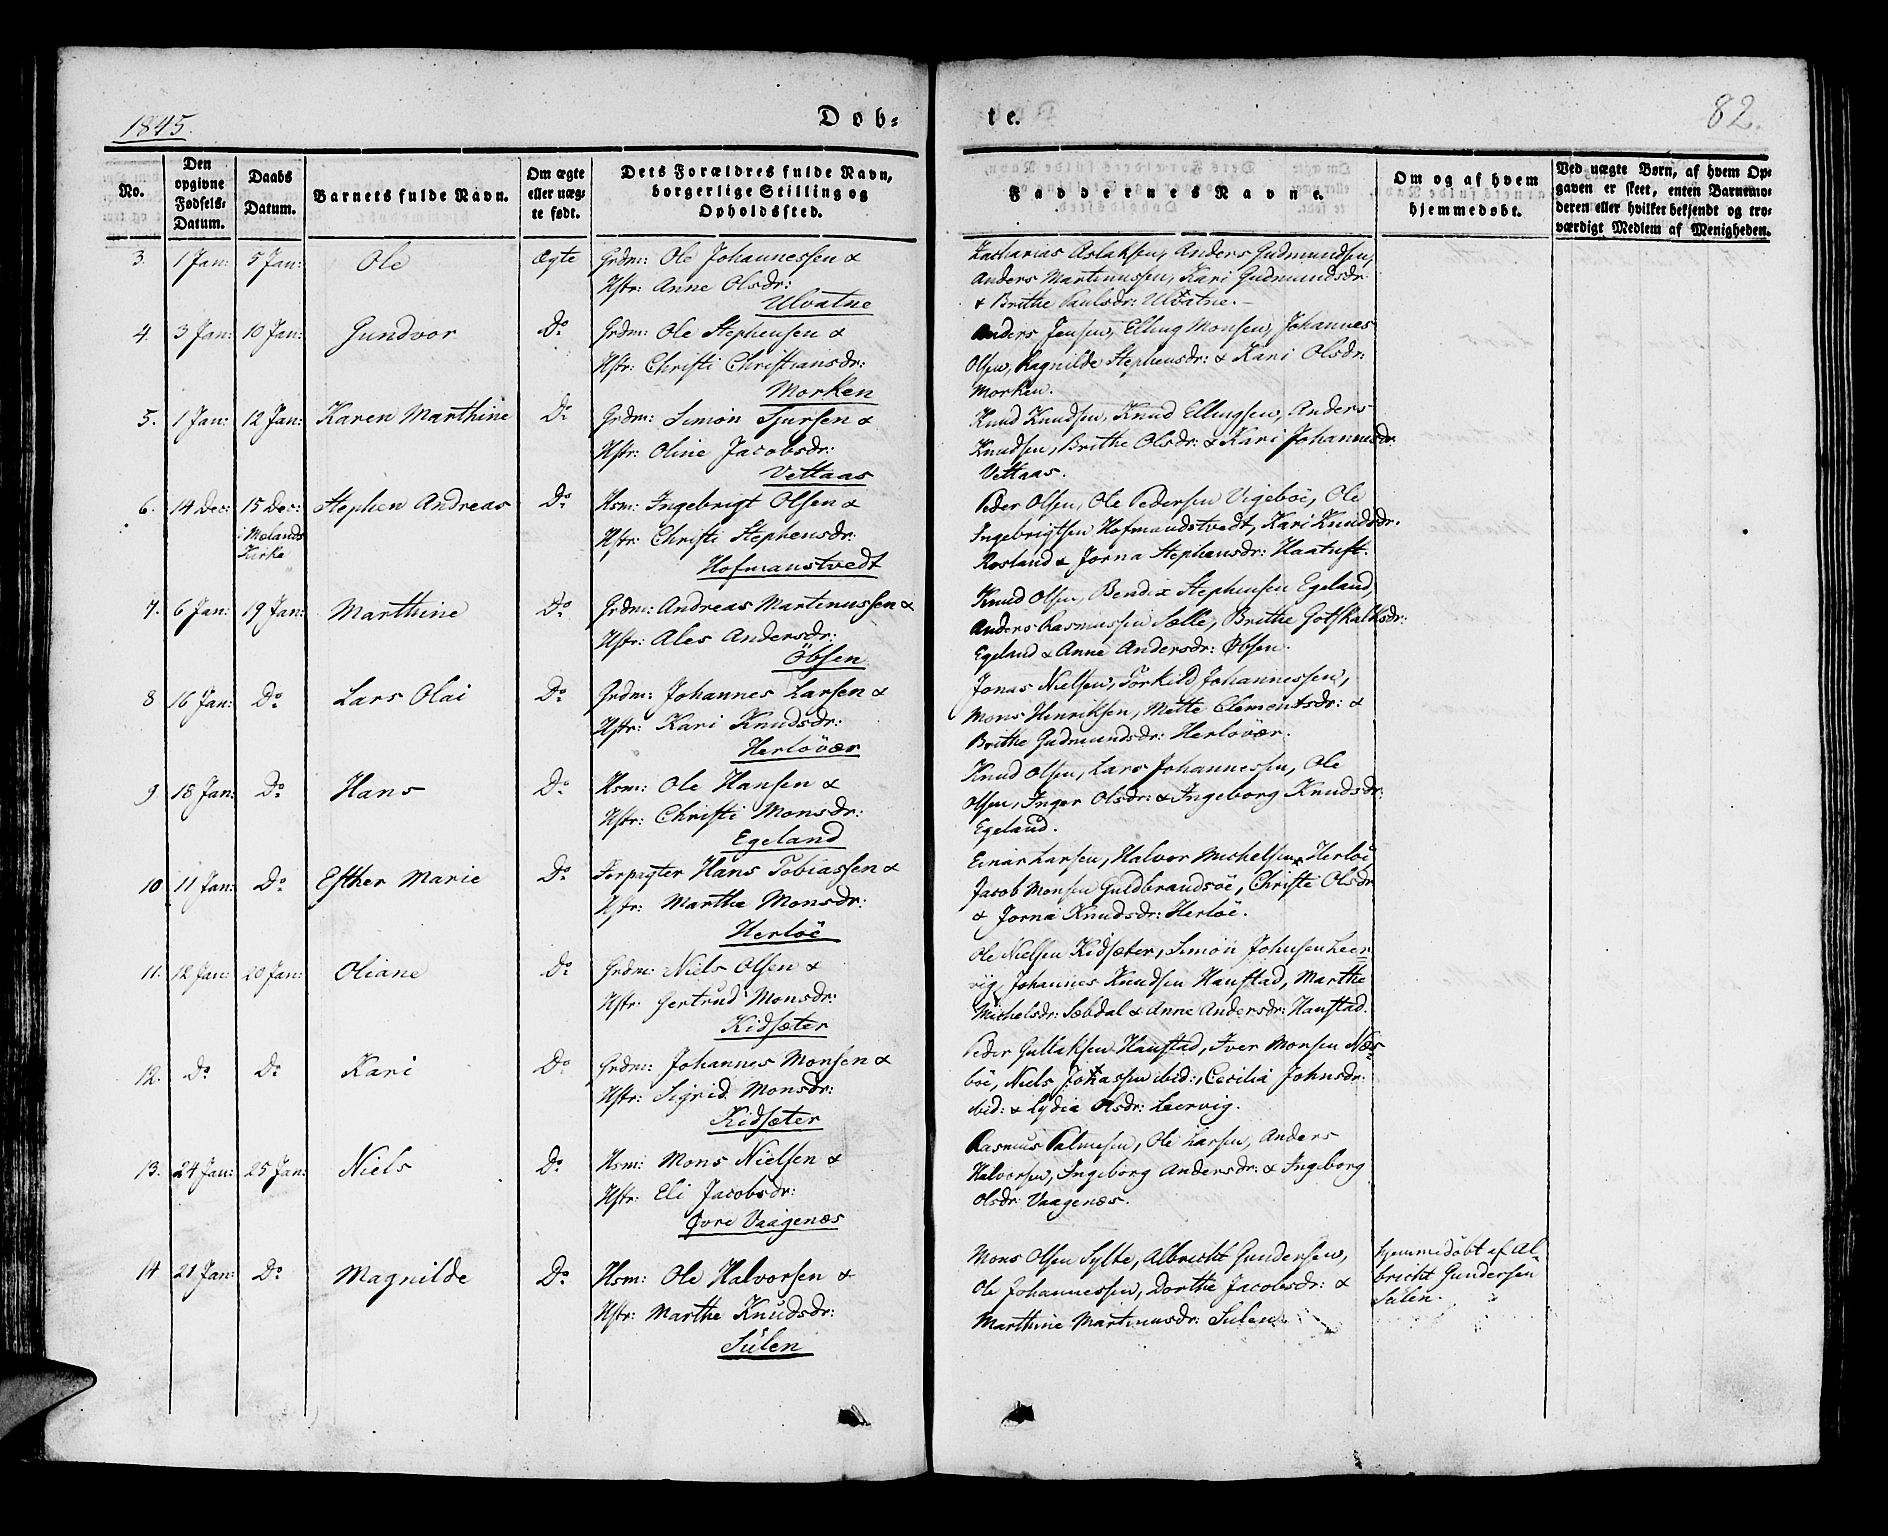 1845.
Døb-
te.
82.
No.
Den opgivne Fødsels-Datum.
Daabs Datum.
Barnets fulde Navn.
Om ægte eller uæg-te født.
Dets Forældres fulde Navn, borgerlige Stilling og Opholdssted.
Faddernes Navne.
Om og af hvem hjemmedøbt.
Ved uægte Børn, af hvem Op-gaven er skeet, enten Barnemo-deren eller hvilket bekjendt og tro-værdigt Medlem af Menigheden.
3. 1 Jan: 5 Jan: Ole ægte Grdm: Ole Johannessen &
Hstr: Anne Olsdr:
Ulvatne
Zacharias Aslaksen, Anders Gudmundsen,
Anders Martinussen, Kari Gudmundsdr:
& Brithe Paulsdr: Ulvatne.
4. 3 Jan: 10 Jan: Gundvor Do Grdm: Ole Stephensen &
Hstr: Christi Christiansdr:
Morken
Anders Jensen, Elling Monsen, Johannes
Olsen, Ragnilde Stephensdr: & Kari Olsdr:
Morken.
5. 1 Jan: 12 Jan: Karen Marthine Do Grdm: Simon Sjursen &
Hstr: Oline Jacobsdr:
Vettaas
Knud Knudsen, Knud Ellingsen, Anders
Knudsen, Brithe Olsdr: & Kari Johannesdr:
Vettaas.
6. 14 Dec: 15 Dec: Stephen Andreas Do Hsm: Ingebrigt Olsen &
i Mælands
Kirke
Hstr: Christi Stephensdr:
Hofmanstvedt
Peder Olsen, Ole Pedersen Vigeböe, Ole
Ingebrigtsen Hofmandstvedt, Kari Knudsdr:
Rosland & Jorna Stephensdr: Haatuft.
7. 6 Jan: 19 Jan: Marthine Do Grdm: Andreas Martinussen &
Hstr: Ales Andersdr:
Öbsen
Knud Olsen, Bendix Stephensen Egeland,
Anders Rasmussen Sælle, Brithe Gotskalksdr:
Egeland & Anne Andersdr: Øbsen.
8 16 Jan: Do Lars Olai Do Grdm: Johannes Larsen &
Hstr: Kari Knudsdr:
Herlövær
Jonas Nielsen, Törkild Johannessen,
Mons Henriksen, Mette Clementsdr: &
Brithe Gudmundsdr: Herlövær.
9. 18 Jan: Do Hans Do Hsm: Ole Hansen &
Hstr: Christi Monsdr:
Egeland
Knud Olsen, Lars Johannessen, Ole
Olsen, Inger Olsdr: & Ingeborg Knudsdr:
Egeland.
10 11 Jan: Do Esther Marie Do Forpagter Hans Tobiassen &
Hstr: Marthe Monsdr:
Herlöe
Einar Larsen, Halvor Michelsen Herlöe,
Jacob Monsen Guldbrandsöe, Christi Olsdr:
& Jorna Knudsdr: Herlöe.
11. 12 Jan: 20 Jan: Oliane Do Grdm: Niels Olsen &
Hstr: Gertrud Monsdr:
Kidsæter
Ole Nielsen Kidsæter, Simon Johnsen Leer-
vig, Johannes Knudsen Haustad, Marthe
Michelsdr: Sæbdal & Anne Andersdr: Haustad.
12. Do Do Kari Do Grdm: Johannes Monsen &
Hstr: Sigrid Monsdr:
Kidsæter
Peder Gullaksen Haustad, Iver Monsen Næs-
böe, Niels ibid:, Cecilia Johnsdr:
ibid: & Lydia Olsdr: Leervig.
13. 24 Jan: 25 Jan: Niels Do Hsm: Mons Nielsen &
Hstr: Eli Jacobsdr:
Øvre Vaagenæs
Rasmus Palmesen, Ole Larsen, Anders
Halvorsen, Ingeborg Andersdr: & Ingeborg
Olsdr: Vaagenæs.
14 21 Jan: Do Magnilde Do Hsm: Ole Halvorsen &
Hstr: Marthe Knudsdr:
Sülen
Mons Olsen Sylte, Albricht Gundersen,
Ole Johannessen, Dorthe Jacobsdr: &
Marthine Martinusdr: Sulen.
hjemmedøbt af Al-
bricht Gundersen
Sulen.